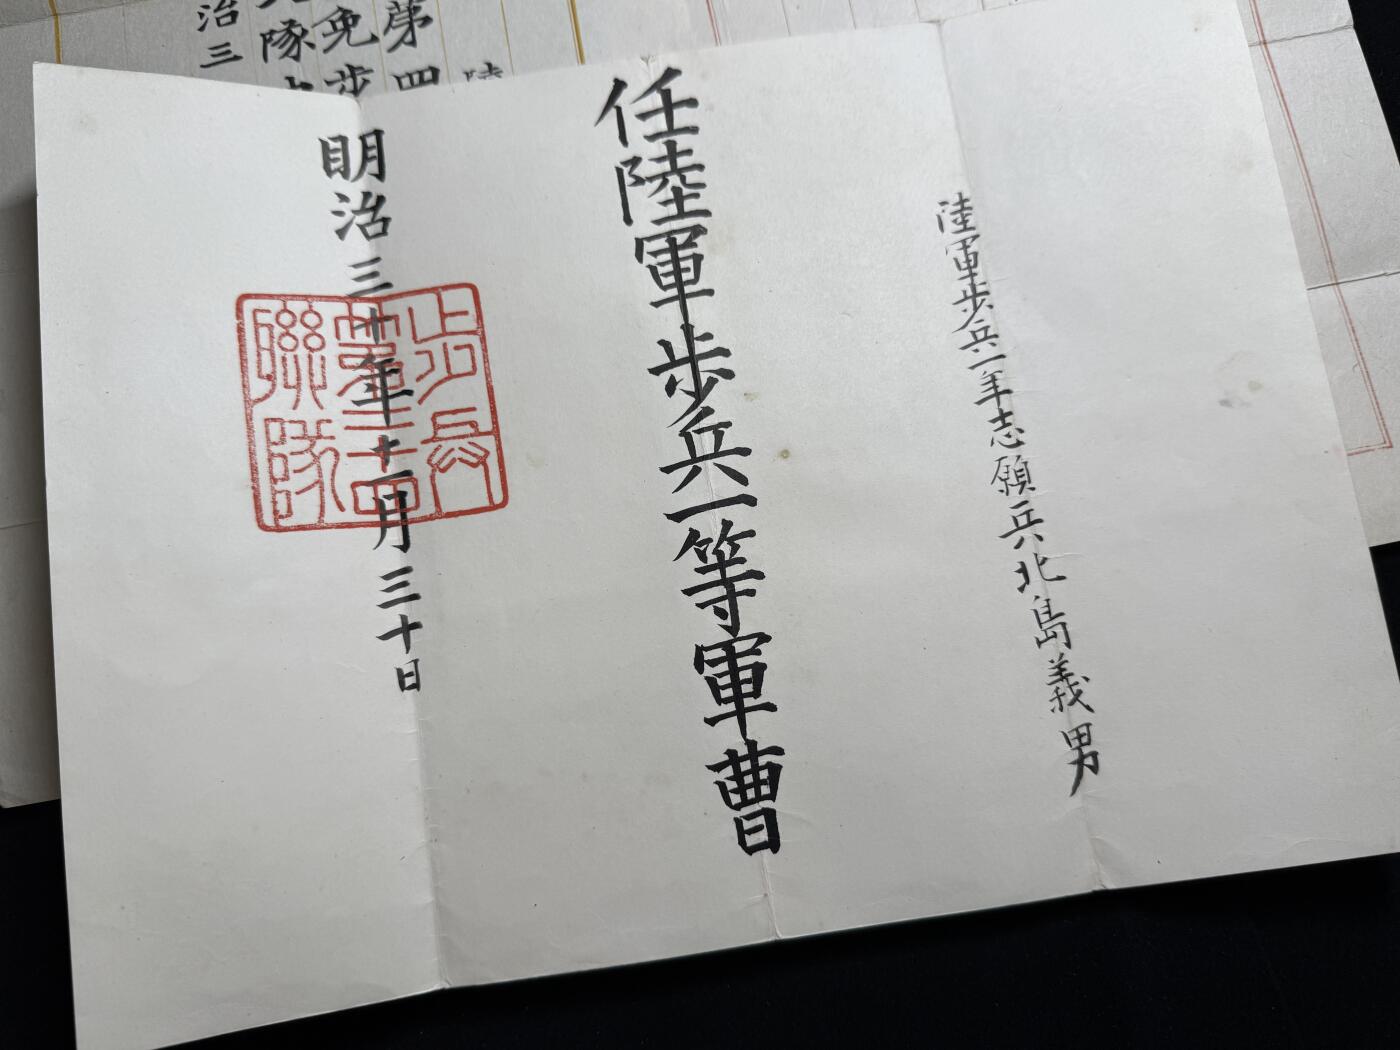 陸軍歩兵一年志願兵北島義男
任陸軍歩兵一等軍曹
明治三十年十一月三十日
步兵
第二十四
聯隊
第四
免歩
隊
治三